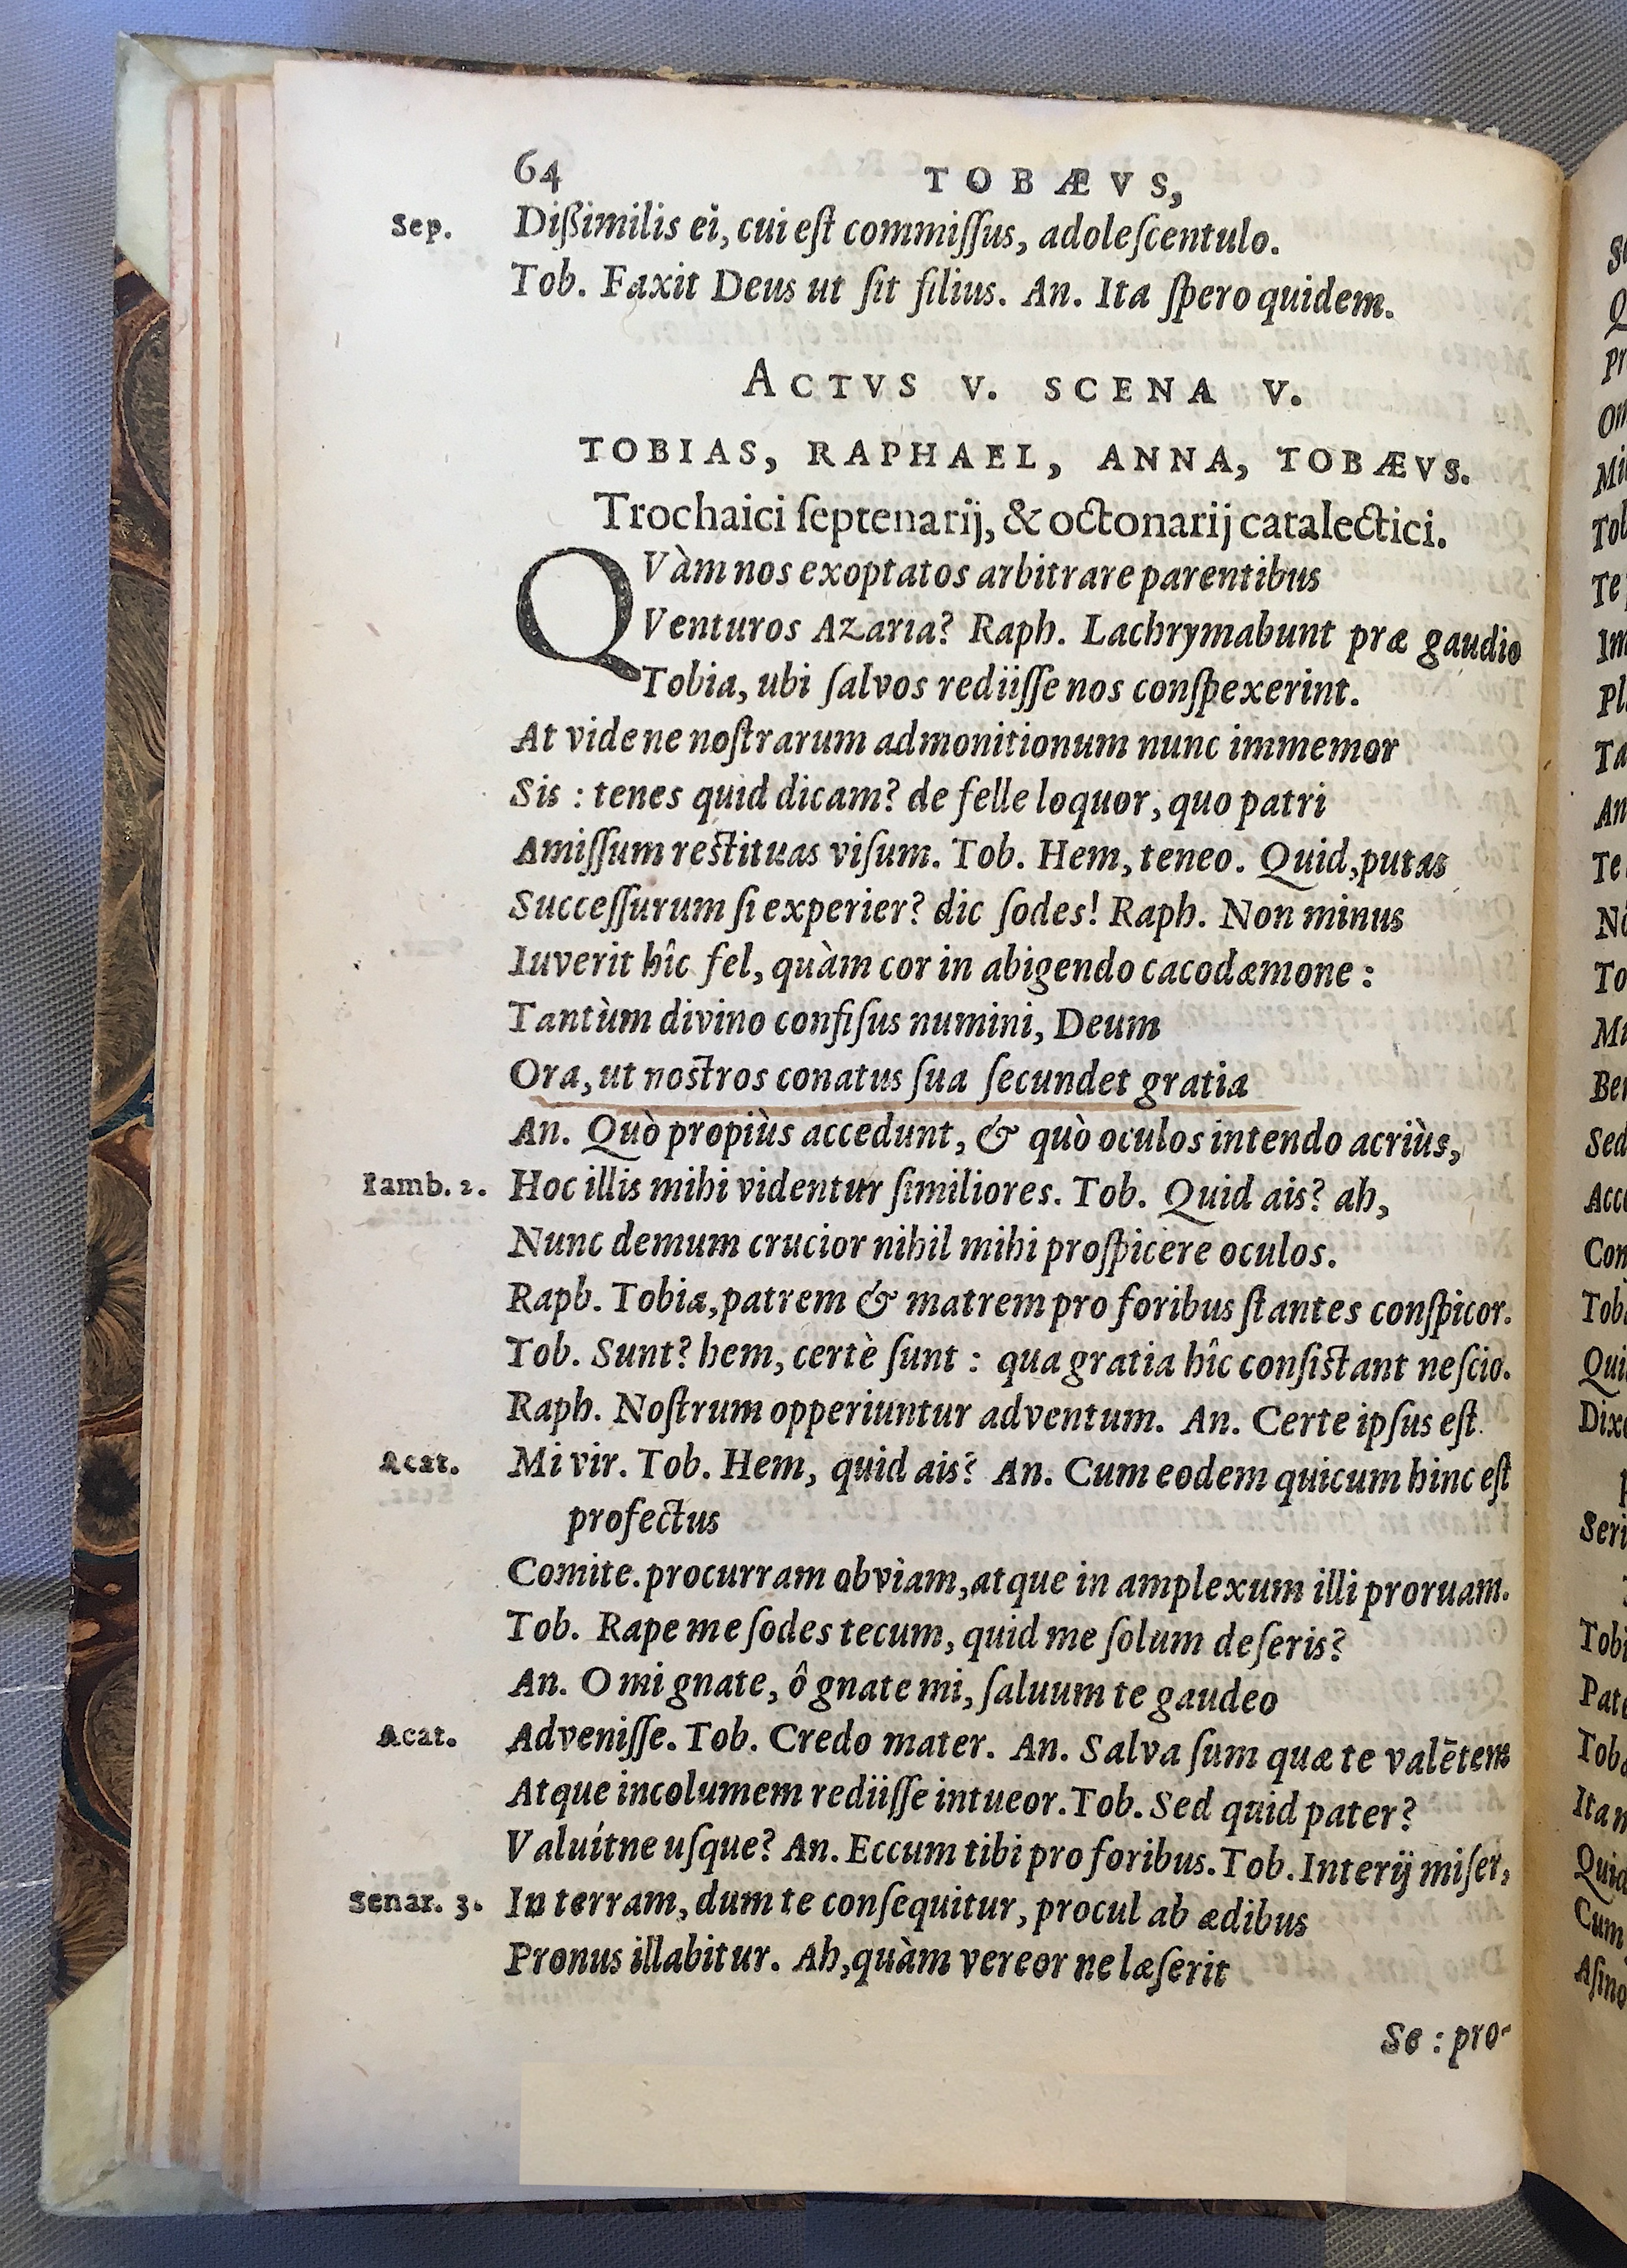 64 TOBÆVS,
Sep. Dißimilis ei, cui eſt commiſſus, adoleſcentulo.
Tob. Faxit Deus ut ſit filius. An. Ita ſpero quidem.
ACTVS V. SCENA V.
TOBIAS, RAPHAEL, ANNA, TOBÆVS.
Trochaici ſeptenarij, & octonarij catalectici.
QVàm nos exoptatos arbitrare parentibus
Venturos Azaria? Raph. Lachrymabunt præ gaudio
Tobia, ubi ſalvos rediiſſe nos conſpexerint.
At vide ne noſtrarum admonitionum nunc immemor
Sis : tenes quid dicam? de felle loquor, quo patri
Amiſſum reſtituas viſum. Tob. Hem, teneo. Quid, putas
Succeſſurum ſi experier? dic ſodes! Raph. Non minus
Iuverit hîc fel, quàm cor in abigendo cacodæmone :
Tantùm divino confiſus numini, Deum
Ora, ut noſtros conatus ſua ſecundet gratia
An. Quò propiùs accedunt, & quò oculos intendo acriùs,
Iamb. 2. Hoc illis mihi videntur ſimiliores. Tob. Quid ais? ah,
Nunc demum crucior nihil mihi proſpicere oculos.
Raph. Tobia, patrem & matrem pro foribus ſtantes conſpicor.
Tob. Sunt? hem, certè ſunt : qua gratia hîc conſiſtant neſcio.
Raph. Noſtrum opperiuntur adventum. An. Certe ipſus eſt
Acat. Mi vir. Tob. Hem, quid ais? An. Cum eodem quicum hinc eſt
profectus
Comite. procurram obviam, atque in amplexum illi proruam.
Tob. Rape me ſodes tecum, quid me ſolum deſeris?
An. O mi gnate, ô gnate mi, ſaluum te gaudeo
Acat. Adveniſſe. Tob. Credo mater. An. Salva ſum quæ te valētem
Atque incolumem rediiſſe intueor. Tob. Sed quid pater?
Valuítne uſque? An. Eccum tibi pro foribus. Tob. Interij miſer,
Senar. 3. In terram, dum te conſequitur, procul ab ædibus
Pronus illabitur. Ah, quàm vereor ne læſerit
Se : pro-